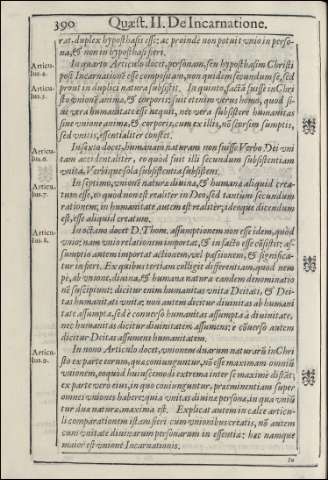 390 Quæst. II. De Incarnatione.
rat, duplex hypostasis esse: ac proinde non potuit vnio in perso-
na, & non in hypostasi fieri.
Articu-
lus 4.
In quarto Articulo docet, personam, seu hypostasim Christi
post Incarnationē esse compositam, non quidem secundum se, sed
prout in duplici natura subsistit. In quinto, factā fuisse in Chri
Articu-
lus 5.
sto vnionē animæ, & corporis: fuit etenim verus homo, quod si-
ne vera humanitate esse nequit, nec vera subsistere humanitas
sine vnione animæ, & corporis, cum ex illis, nō seorsim sumptis,
sed vnitis, essentialiter constet.
Articu-
lus 6.
In sexto docet, humanam naturam non fuisse Verbo Dei vni
tam accidentaliter, eo quod fuit illi secundum subsistentiam
vnita, Verbique sola subsistentia subsistens.
Articu-
lus 7.
In septimo, vnionē naturæ diuinæ, & humanæ aliquid crea-
tum esse, eo quod non est realiter in Deo, sed tantum secundum
rationem; in humanitate autem est realiter; ideoque dicendum
est, esse aliquid creatum.
Articu-
lus 8.
In octauo docet D. Thom. assumptionem non esse idem, quod
vnio; nam vnio relationem importat, & in facto esse cōsistit: as-
sumptio autem importat actionem, vel passionem, & significa-
tur in fieri. Ex quibus tertiam colligit differentiam, quod nem
pe, ab vnione, diuina, & humana natura eandem denominatio
nē suscipiunt: dicitur enim humanitas vnita Deitati, & Dei-
tas humanitati vnita: non autem dicitur diuinitas ab humani
tate assumpta, sed è conuerso humanitas assumpta à diuinitate,
nec humanitas dicitur diuinitatem assumens; e cōuerso autem
dicitur Deitas assumens humanitatem.
Articu-
lus 9.
In nono Articulo docet, vnionem duarum naturarū in Chri
sto ex parte eorum, quæ coniunguntur, nō esse maximam omniū
vnionem, eo quod huiuscemodi extrema inter se maximè distāt;
ex parte vero eius, in quo coniunguntur, præeminentiam super
omnes vniones habere, quia vnitas diuinæ personæ, in qua vniū
tur duæ naturæ, maxima est. Explicat autem in calce articu-
li comparationem istam fieri cum vnionibus creatis, nō autem
cum vnitate diuinarum personarum in essentia: hac namque
maior est vnione Incarnationis.
In